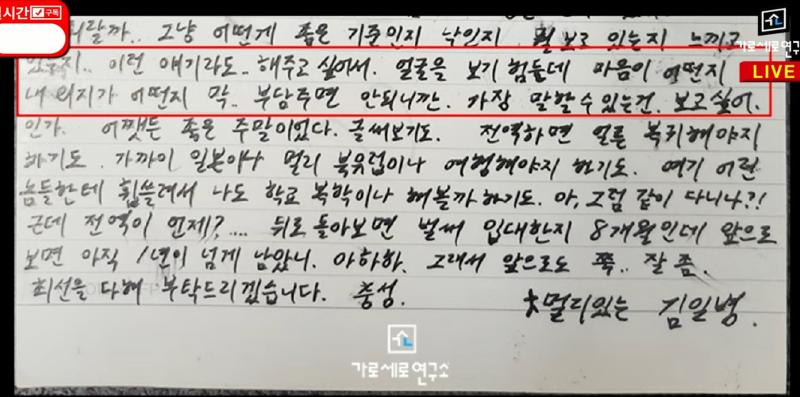 실시간 구독
뭐랄까.. 그냥 어떤게 좋은 기준인지 낙인지 뭘 보고 있는지 느끼고
있는지.. 이런 얘기라도.. 해주고 싶어서. 얼굴을 보기 힘든데 마음이 어떤지
내 의지가 어떤지 막.. 부담주면 안되니깐. 가장 말할 수 있는건. 보고싶어.
인가. 어쨋든 좋은 주말이었다. 글써보기도. 전역하면 얼른 복귀해야지
하기도. 가까이 일본이나 멀리 북유럽이나 여행해야지 하기도. 여기 어린
놈들한테 휩쓸려서 나도 학교 복학이나 해볼까 하기도. 아, 그럼 같이 다니나?!
근데 전역이 언제?.... 뒤로 돌아보면 벌써 입대한지 8개월인데 앞으로
보면 아직 1년이 넘게 남았니. 아하하. 그래서 앞으로도 쭉.. 잘 좀.
최선을 다해 부탁드리겠습니다. 충성.
멀리있는 김일병.
가로세로연구소
LIVE
가로세로연구소